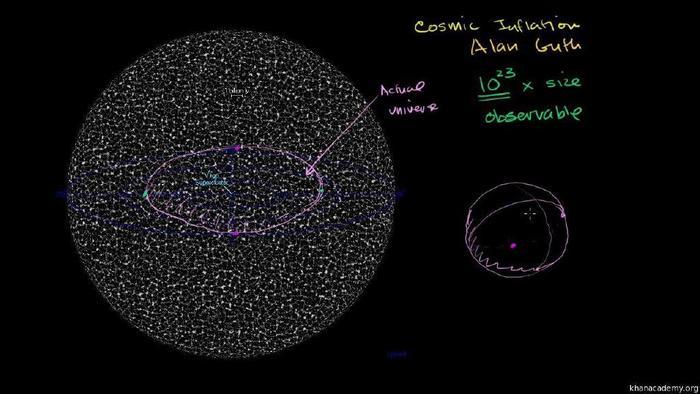 Cosmic Inflation
Alan Guth
10^23 x size
observable
Actual
univers
khanacademy.org